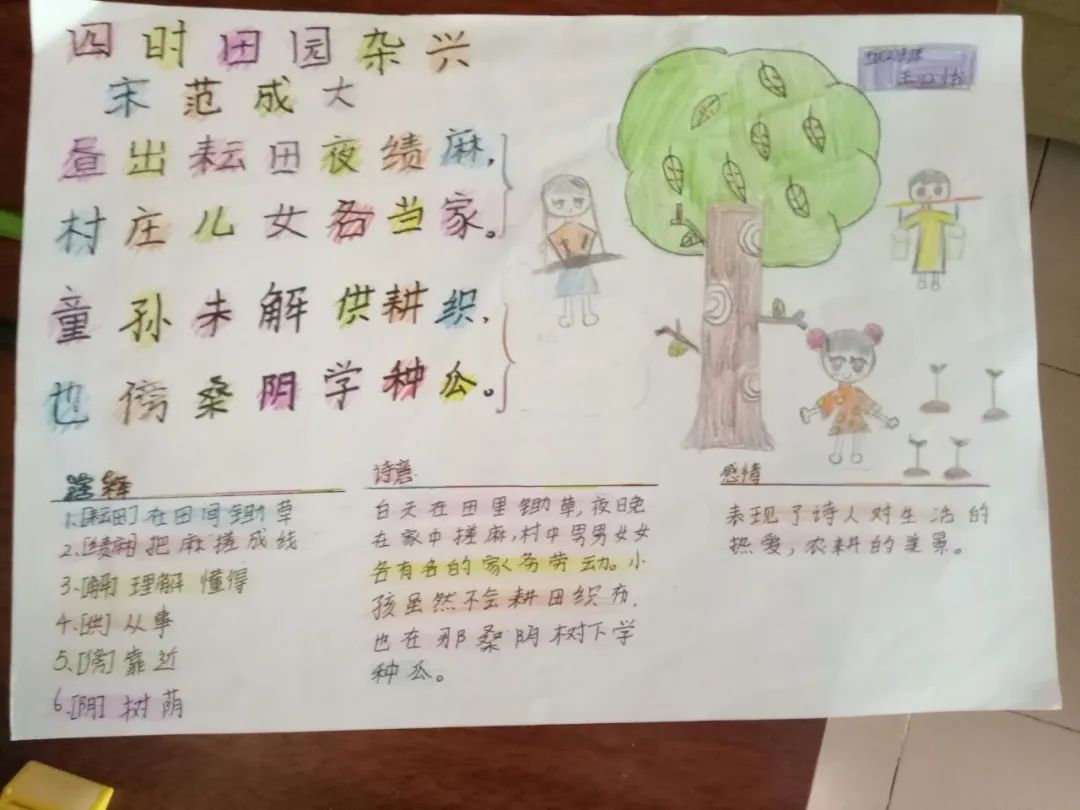 四时田园杂兴
宋 范成大
昼出耘田夜绩麻，
村庄儿女各当家。
童孙未解供耕织，
也傍桑阴学种瓜。
注释
1.[耘田]在田间锄草
2.[绩麻]把麻搓成线
3.[解]理解 懂得
4.[供]从事
5.[傍]靠近
6.[阴]树荫
诗意
白天在田里锄草,夜晚
在家中搓麻,村中男男女女
各有各的家务劳动。小
孩虽然不会耕田织布,
也在那桑阴树下学
种瓜。
感情
表现了诗人对生活的
热爱,农耕的美景。